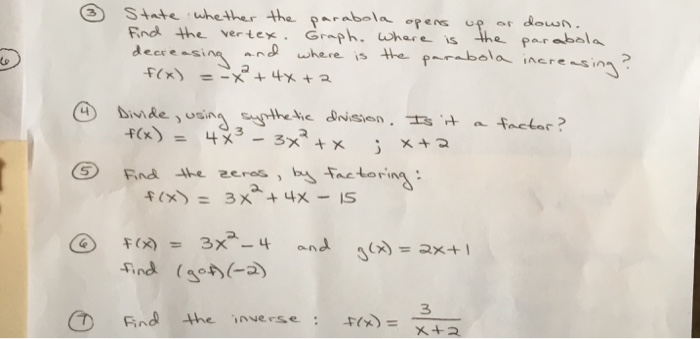 ③ State whether the parabola opens up or down.
Find the vertex. Graph. Where is the parabola
decreasing and where is the parabola increasing?
f(x) = -x² + 4x + 2
④ Divide, using synthetic division. Is it a factor?
f(x) = 4x³ - 3x² + x ; x + 2
⑤ Find the zeros, by factoring:
f(x) = 3x² + 4x - 15
⑥ f(x) = 3x² - 4 and g(x) = 2x+1
find (gof)(-2)
⑦ Find the inverse : f(x) = 3/(x+2)